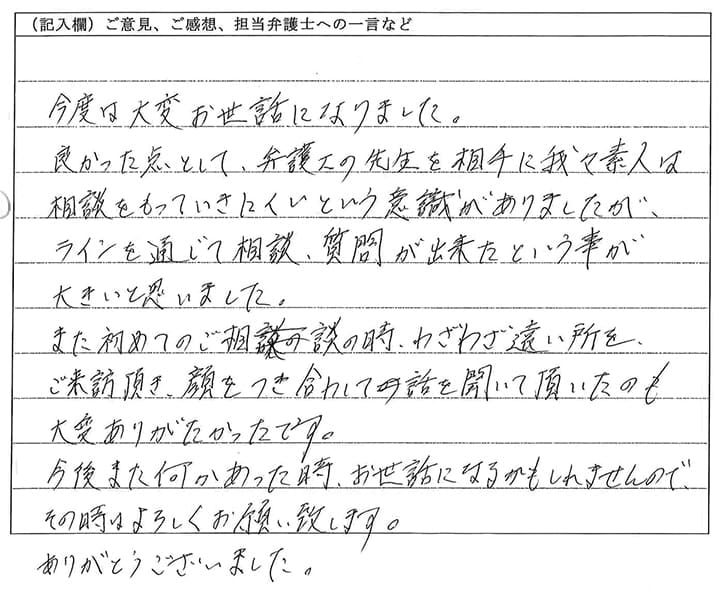 （記入欄）ご意見、ご感想、担当弁護士への一言など
今度は大変お世話になりました。
良かった点として、弁護士の先生を相手に我々素人は
相談をもっていきにくいという意識がありましたが、
ラインを通じて相談、質問が出来たという事が
大きいと思いました。
また初めてのご相談の時、わざわざ遠い所を、
ご来訪頂き、顔をつき合わして話を聞いて頂いたのも
大変ありがたかったです。
今後また何かあった時、お世話になるかもしれませんので、
その時はよろしくお願い致します。
ありがとうございました。